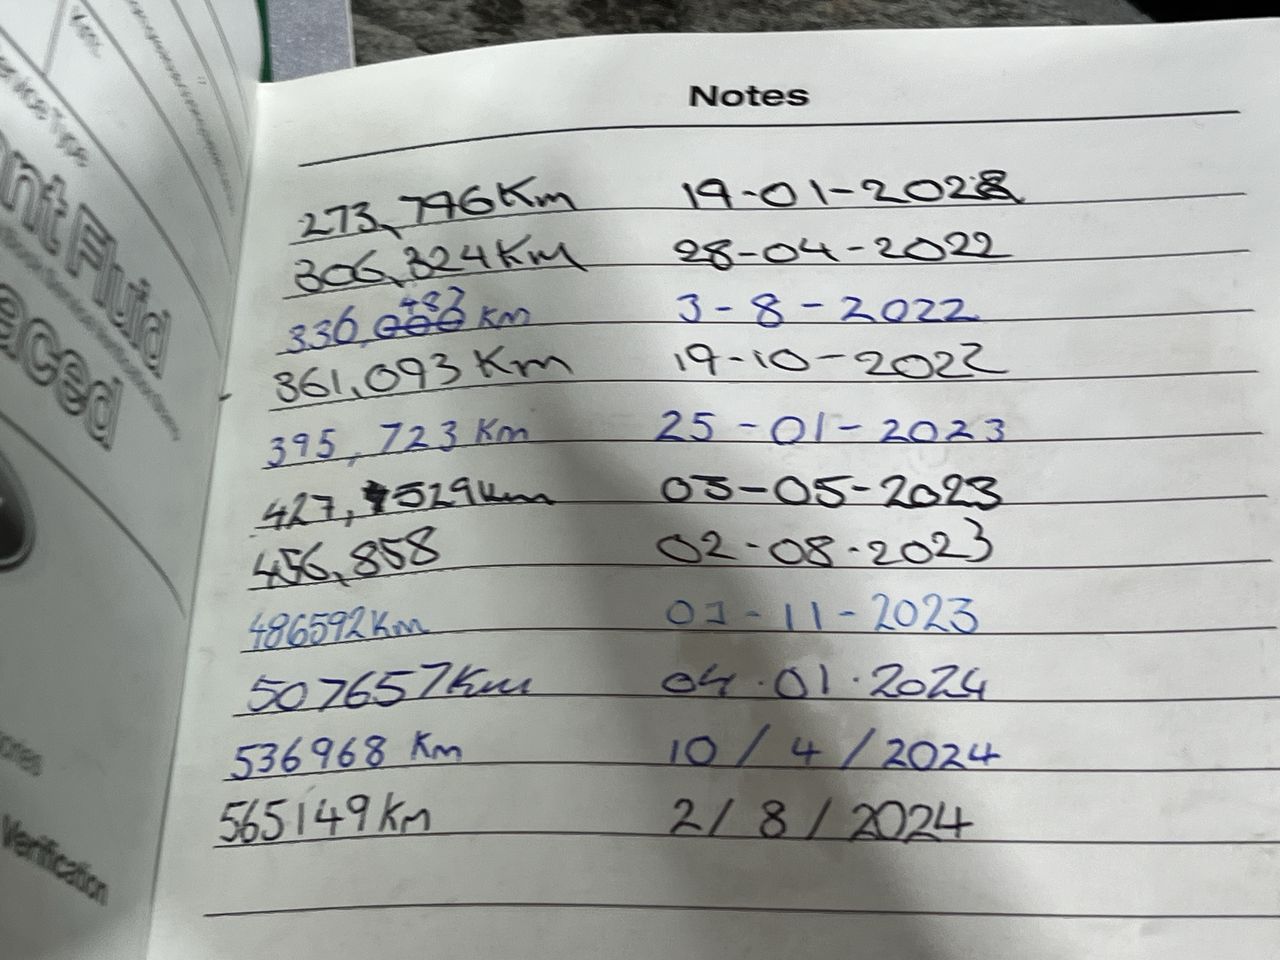 Notes
273,796Km 19-01-2022
306,324Km 28-04-2022
336,483 Km 3-8-2022
361,093 Km 19-10-2022
395,723 Km 25-01-2023
427,529Km 03-05-2023
456,858 02-08-2023
486592Km 01-11-2023
507657Km 04.01.2024
536968 Km 10/4/2024
565149Km 2/8/2024
nt Fluid
aced
Verification